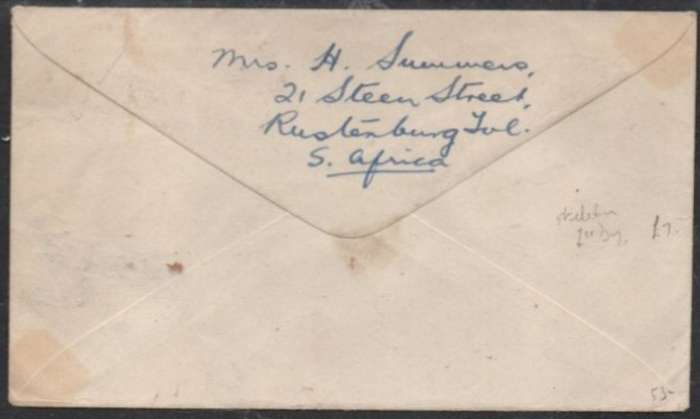 Mrs. H. Summers,
21 Steen Street,
Rustenburg Tvl.
S. Africa
£7.
53-